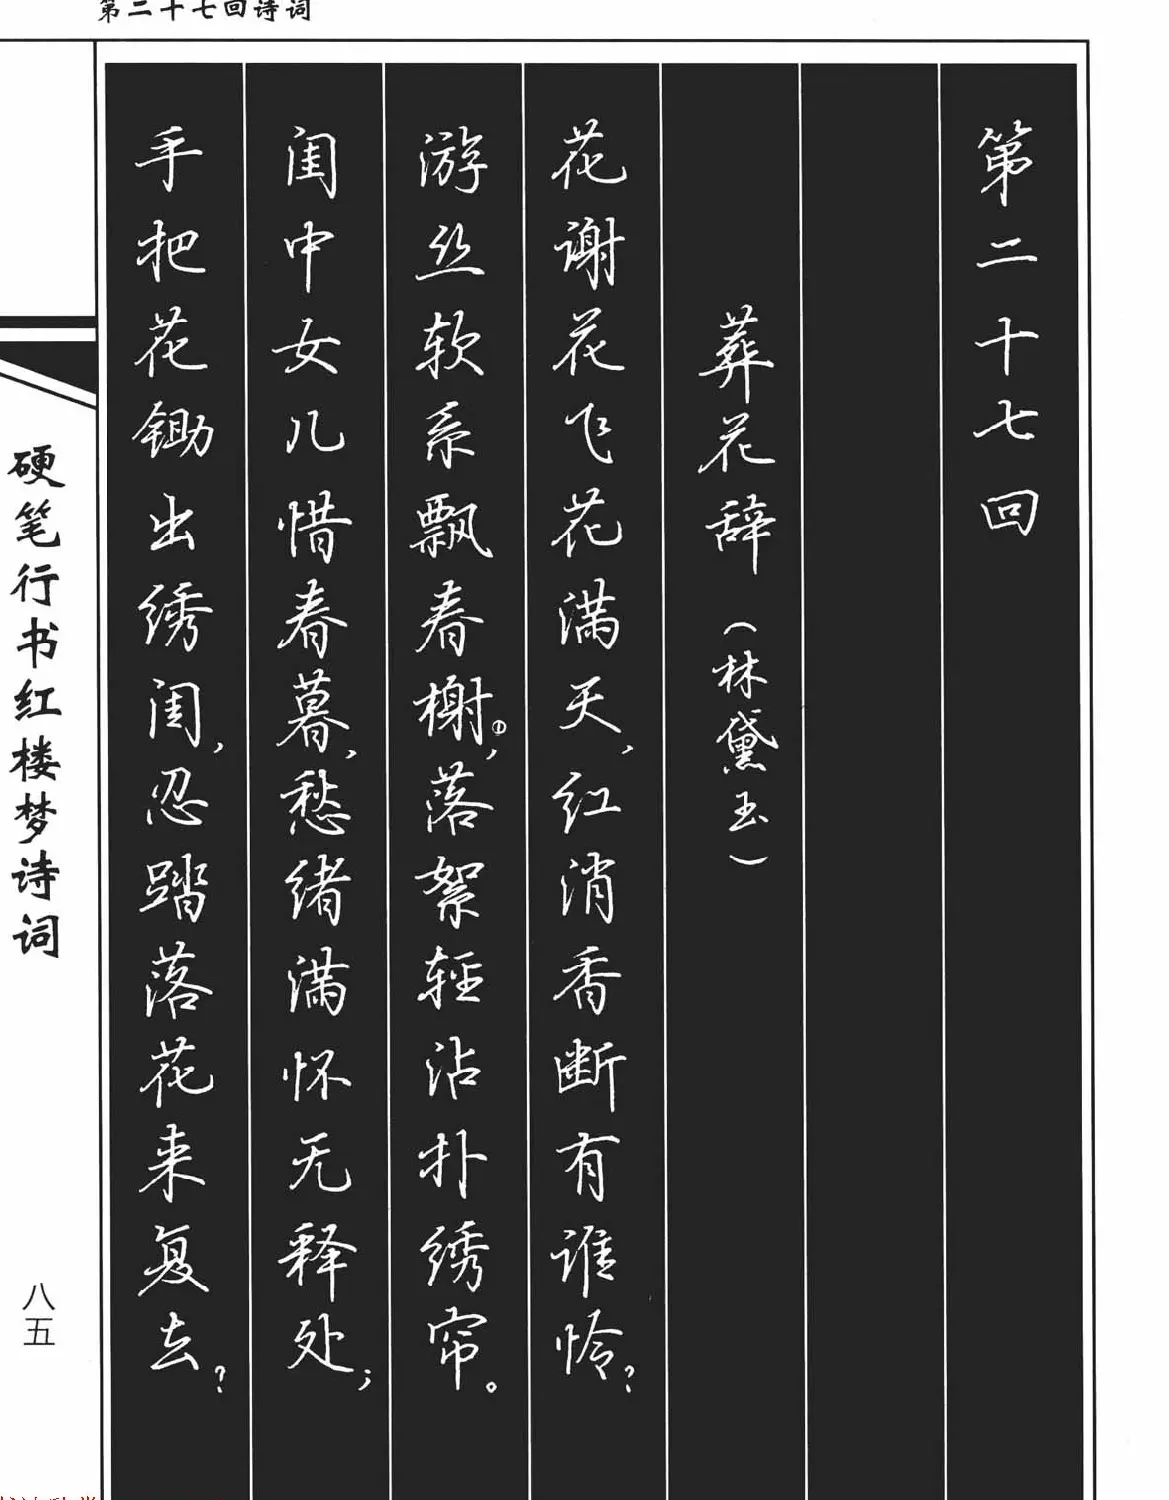 第二十七回诗词
第二十七回
葬花辞（林黛玉）
花谢花飞花满天，红消香断有谁怜？
游丝软系飘春榭①，落絮轻沾扑绣帘。
闺中女儿惜春暮，愁绪满怀无释处；
手把花锄出绣闺，忍踏落花来复去？
硬笔行书红楼梦诗词
八五